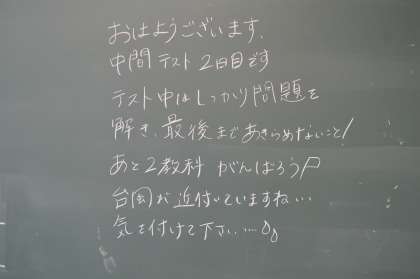 おはようございます.
中間テスト2日目です
テスト中はしっかり問題を
解き、最後まであきらめないこと!
あと2教科 がんばろう
台風が近付いていますね…
気を付けて下さい…